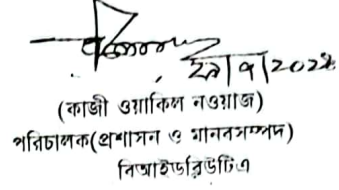 (কাজী ওয়াকিল নওয়াজ)
পরিচালক(প্রশাসন ও মানবসম্পদ)
বিআইডব্লিউটিএ